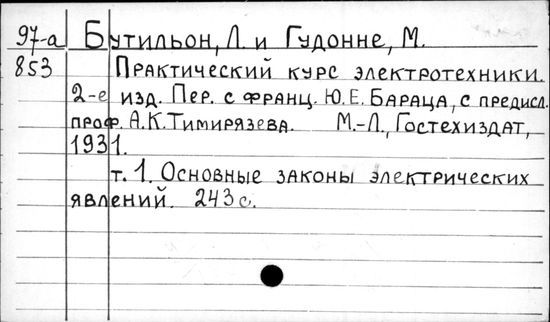 97-а Бутильон, Л. и Гудонне, М.
853 Практический курс электротехники.
2-е изд. Пер. с франц. Ю.Е. Бараца, с предисл.
проф. А.К. Тимирязева. М.-Л., Гостехиздат,
1931.
т. 1. Основные законы электрических
явлений. 243 с.